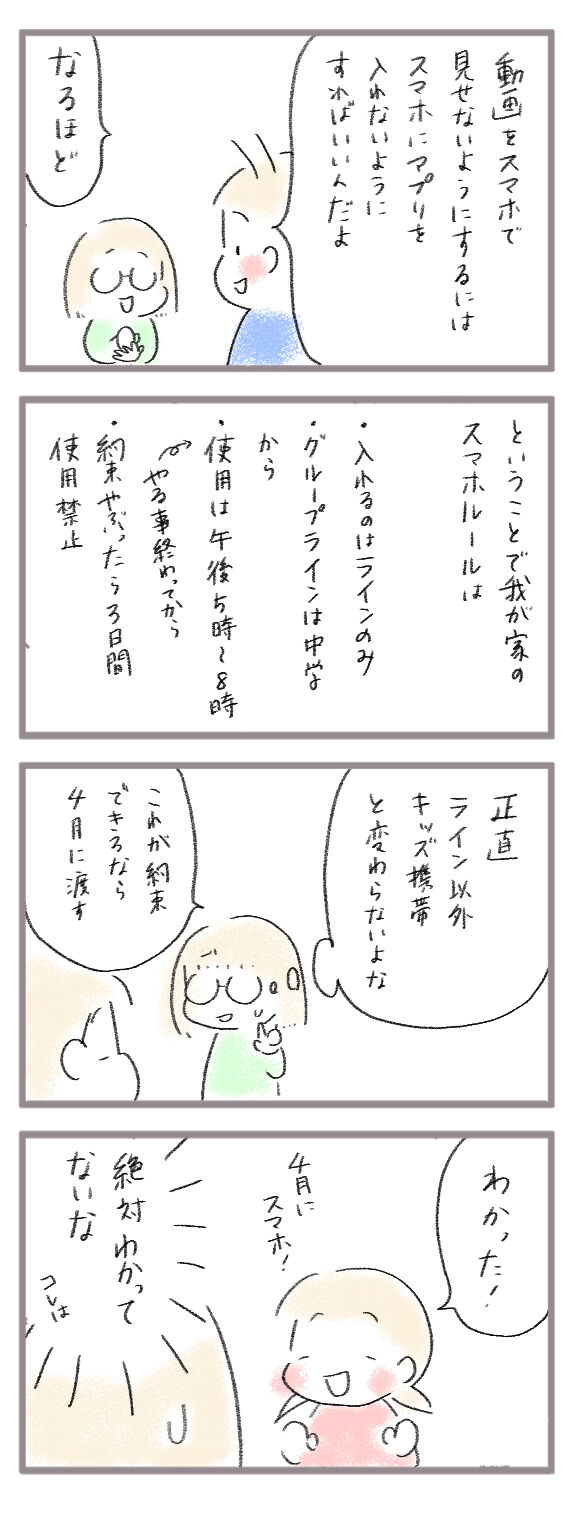 動画をスマホで
見せないようにするには
スマホにアプリを
入れないように
すればいいんだよ
なるほど
ということで我が家の
スマホルールは
・入れるのはラインのみ
・グループラインは中学
から
・使用は午後5時~8時
やる事終わってから
・約束やぶったら3日間
使用禁止
正直
ライン以外
キッズ携帯
と変わらないよな
これが約束
できるなら
4月に渡す
わかった!
4月に
スマホ!
絶対わかって
ないな
コレは